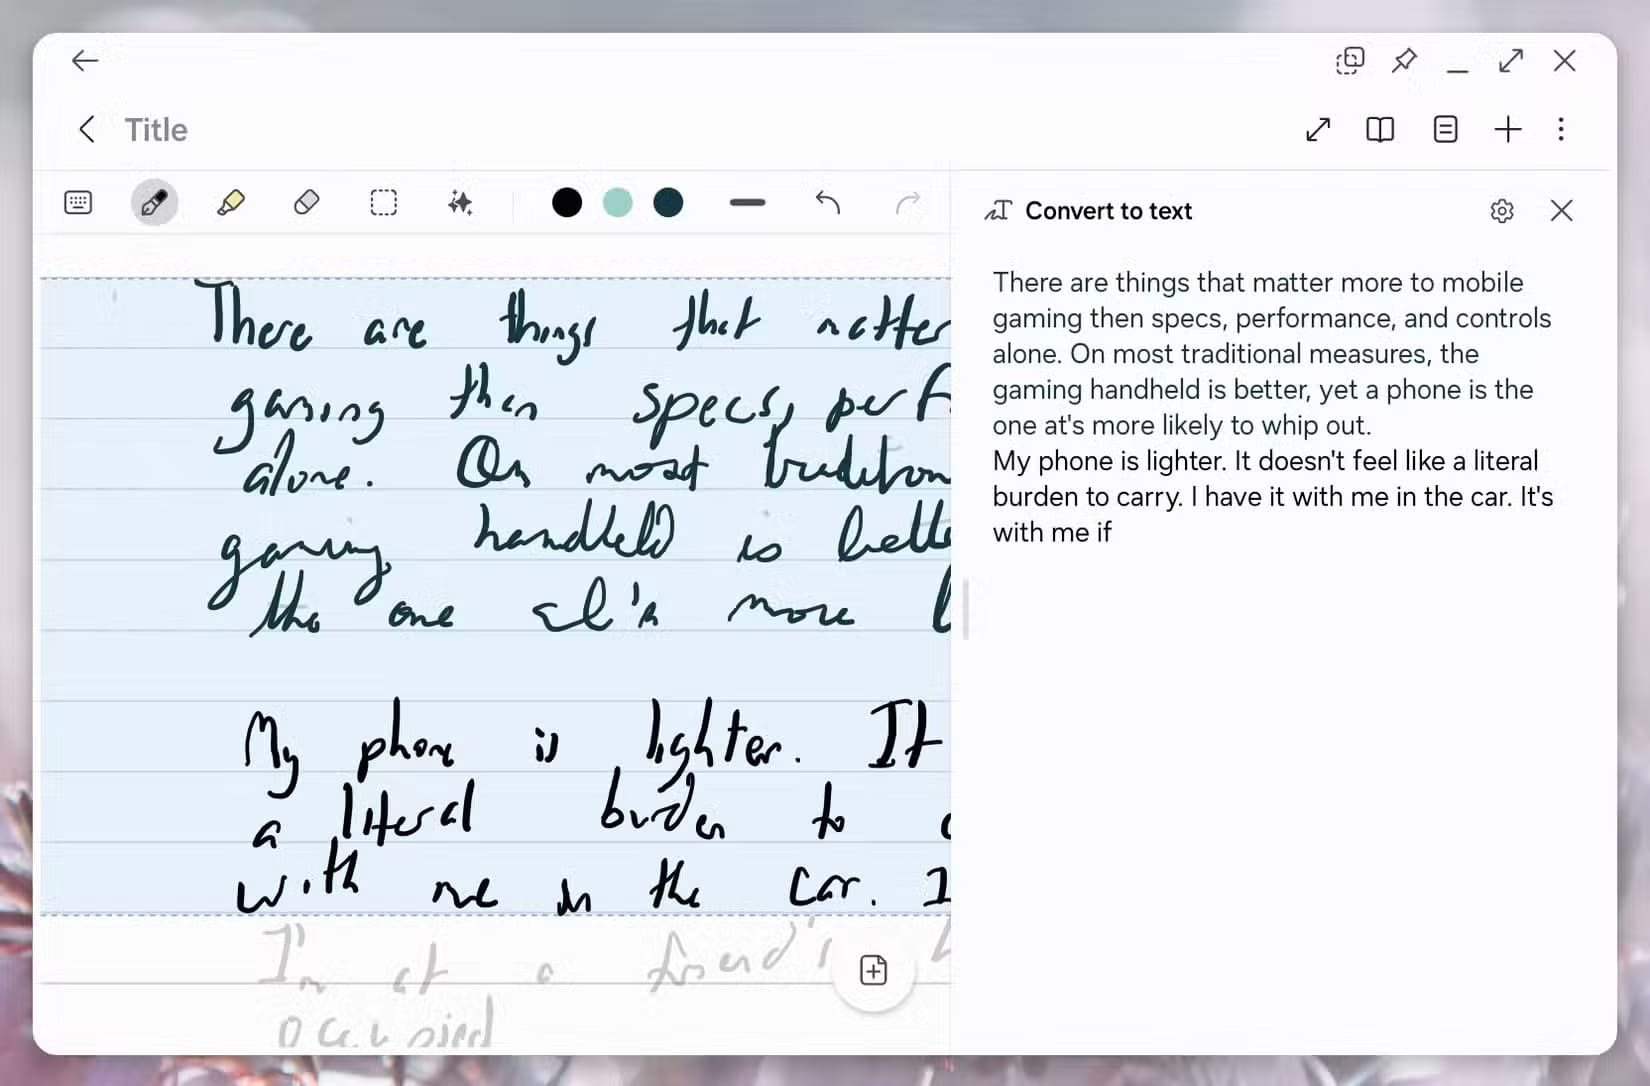 Title
There are things that matter
gaming then specs, perf
alone. On most tradition
gaming handheld is bette
the one at's more l
My phone is lighter. It
a literal burden to c
with me in the car. I
I'm at a friend's h
occupied
Convert to text
There are things that matter more to mobile
gaming then specs, performance, and controls
alone. On most traditional measures, the
gaming handheld is better, yet a phone is the
one at's more likely to whip out.
My phone is lighter. It doesn't feel like a literal
burden to carry. I have it with me in the car. It's
with me if